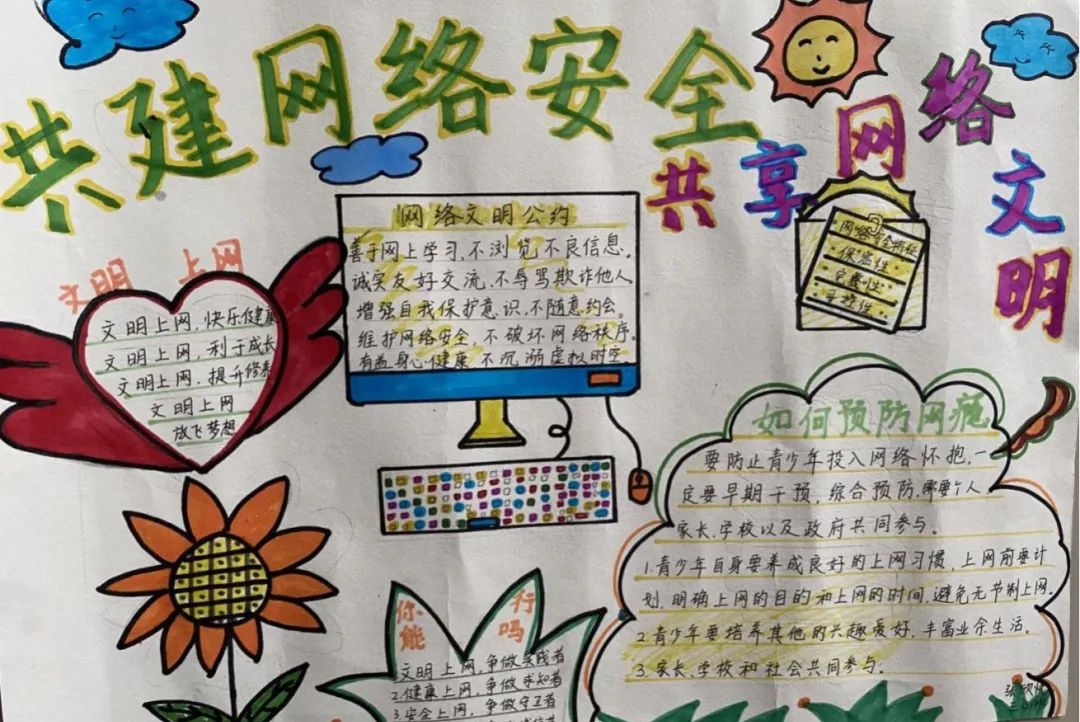 共建网络安全
共享网络文明
文明上网
文明上网，快乐健康
文明上网，利于成长
文明上网，提升修养
文明上网
放飞梦想
网络文明公约
善于网上学习，不浏览不良信息。
诚实友好交流，不辱骂欺诈他人
增强自我保护意识，不随意约会。
维护网络安全，不破坏网络秩序。
有益身心健康，不沉溺虚拟时空。
网络安全特征
保密性
完整性
可控性
如何预防网瘾
要防止青少年投入网络怀抱，一
定要早期干预，综合预防，需要个人、
家长、学校以及政府共同参与。
1.青少年自身要养成良好的上网习惯，上网前要计
划，明确上网的目的和上网的时间，避免无节制上网。
2.青少年要培养其他的兴趣爱好，丰富业余生活。
3.家长、学校和社会共同参与。
你能行吗
1.文明上网，争做实践者
2.健康上网，争做求知者
3.安全上网，争做守卫者